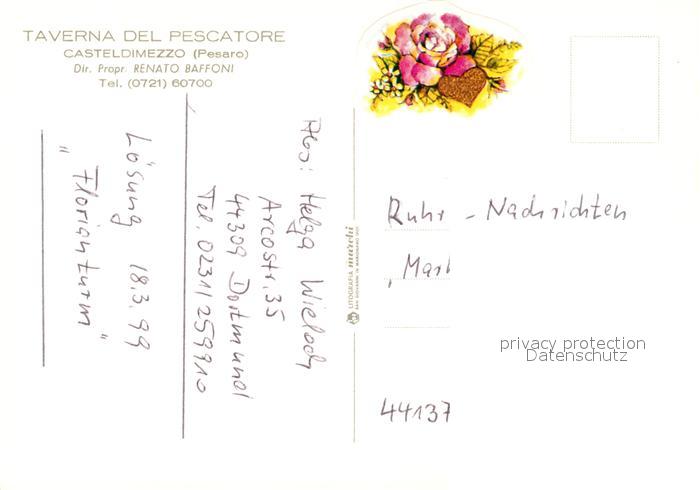 TAVERNA DEL PESCATORE
CASTELDIMEZZO (Pesaro)
Dir. Propr. RENATO BAFFONI
Tel. (0721) 60700
Lösung 18.3.99
"Florianturm"
Abs: Helga Wielody
Arcostr. 35
44309 Dortmund
Tel. 0231/259910
LITOGRAFIA marchi
Ruhr-Nachrichten
, Mark
44137
privacy protection
Datenschutz